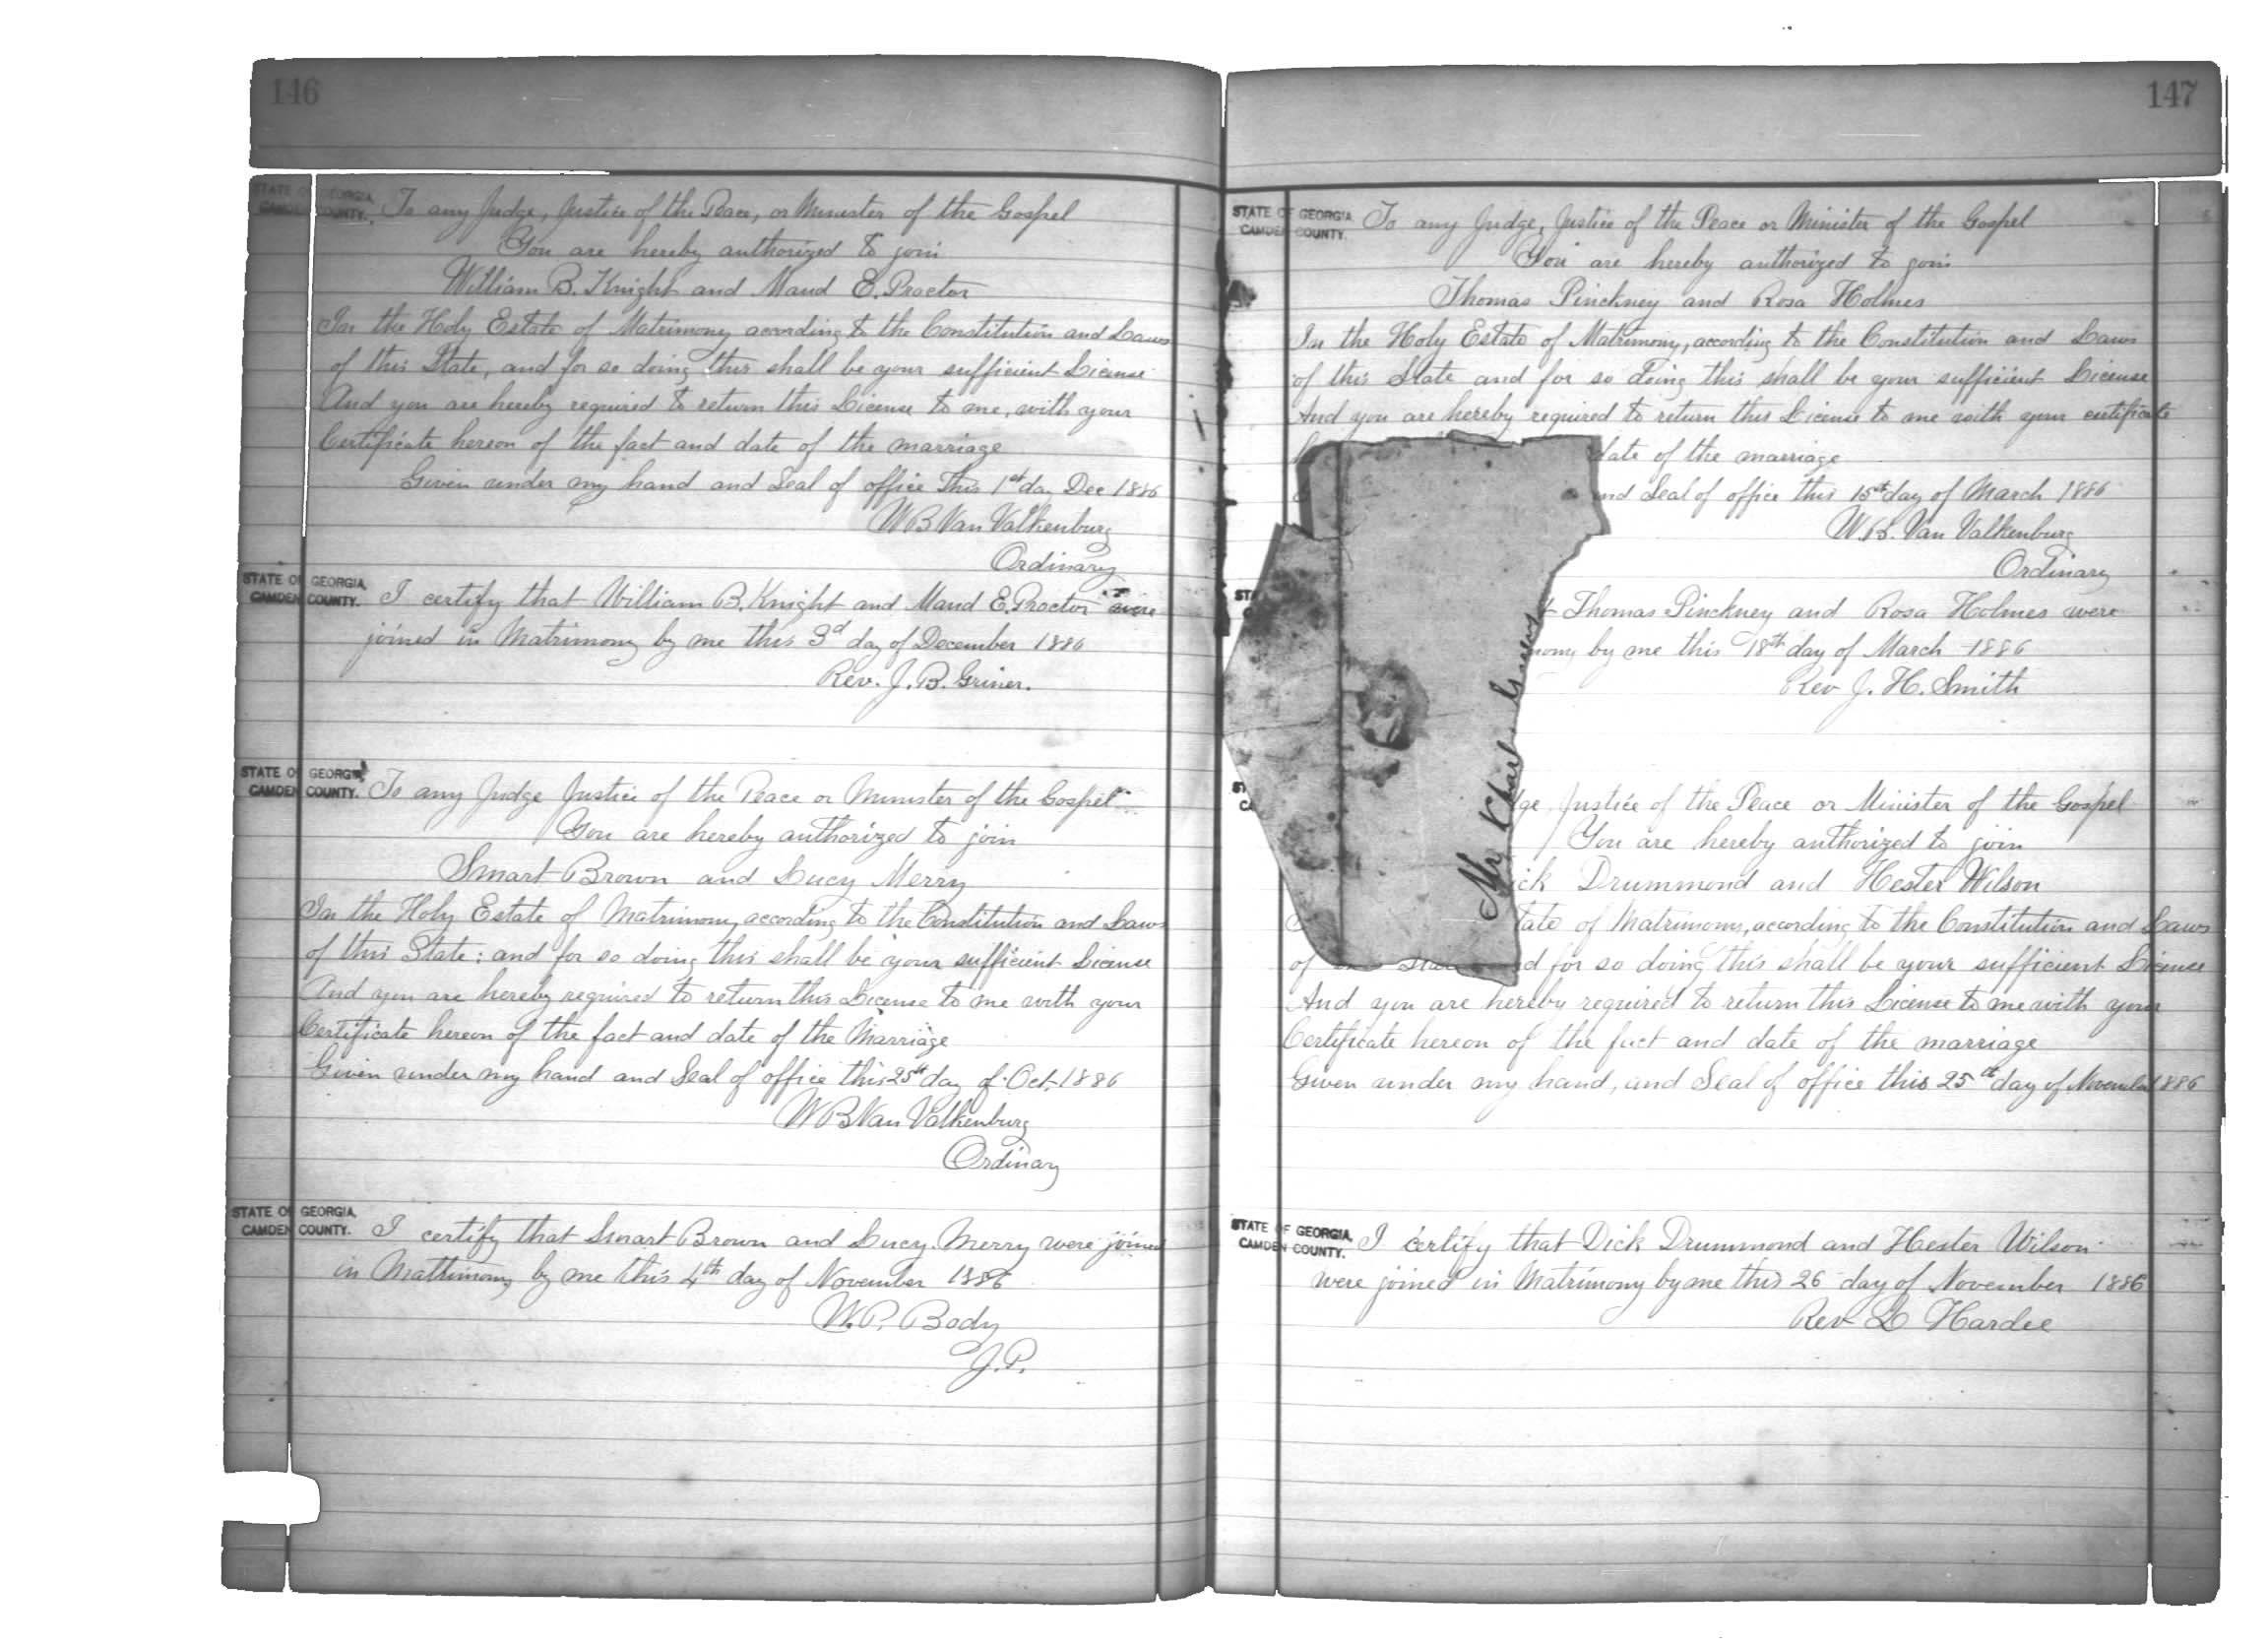 146
STATE OF GEORGIA,
CAMDEN COUNTY.
To any Judge, Justice of the Peace, or Minister of the Gospel
You are hereby authorized to join
William B. Knight and Maud E. Proctor
In the Holy Estate of Matrimony according to the Constitution and Laws
of this State, and for so doing this shall be your sufficient License
And you are hereby required to return this License to me, with your
Certificate hereon of the fact and date of the marriage
Given under my hand and Seal of office this 1st day Dec 1886
W B Van Valkenburg
Ordinary
STATE OF GEORGIA,
CAMDEN COUNTY.
I certify that William B. Knight and Maud E. Proctor were
joined in Matrimony by me this 3d day of December 1886
Rev. J. B. Griner.
STATE OF GEORGIA,
CAMDEN COUNTY.
To any Judge Justice of the Peace or Minister of the Gospel
You are hereby authorized to join
Smart Brown and Lucy Merry
In the Holy Estate of Matrimony according to the Constitution and Laws
of this State; and for so doing this shall be your sufficient License
And you are hereby required to return this License to me with your
Certificate hereon of the fact and date of the Marriage
Given under my hand and Seal of office this 25th day of Oct. 1886
W B Van Valkenburg
Ordinary
STATE OF GEORGIA,
CAMDEN COUNTY.
I certify that Smart Brown and Lucy Merry were joined
in Mattrimony by me this 4th day of November 1886
W. P. Body
J. P.
147
STATE OF GEORGIA,
CAMDEN COUNTY.
To any Judge, Justice of the Peace or Minister of the Gospel
You are hereby authorized to join
Thomas Pinckney and Rosa Holmes
In the Holy Estate of Matrimony, according to the Constitution and Laws
of this State and for so doing this shall be your sufficient License
And you are hereby required to return this License to me with your certificate
date of the marriage
and Seal of office this 15th day of March 1886
W. B. Van Valkenburg
Ordinary
Thomas Pinckney and Rosa Holmes were
by me this 18th day of March 1886
Rev J. H. Smith
Mr
Justice of the Peace or Minister of the Gospel
You are hereby authorized to join
ick Drummond and Hester Wilson
tate of Matrimony, according to the Constitution and Laws
of for so doing this shall be your sufficient License
And you are hereby required to return this License to me with your
Certificate hereon of the fact and date of the marriage
Given under my hand, and Seal of office this 25th day of November 1886
STATE OF GEORGIA,
CAMDEN COUNTY.
I certify that Dick Drummond and Hester Wilson
were joined in Matrimony by me this 26 day of November 1886
Rev L Hardee